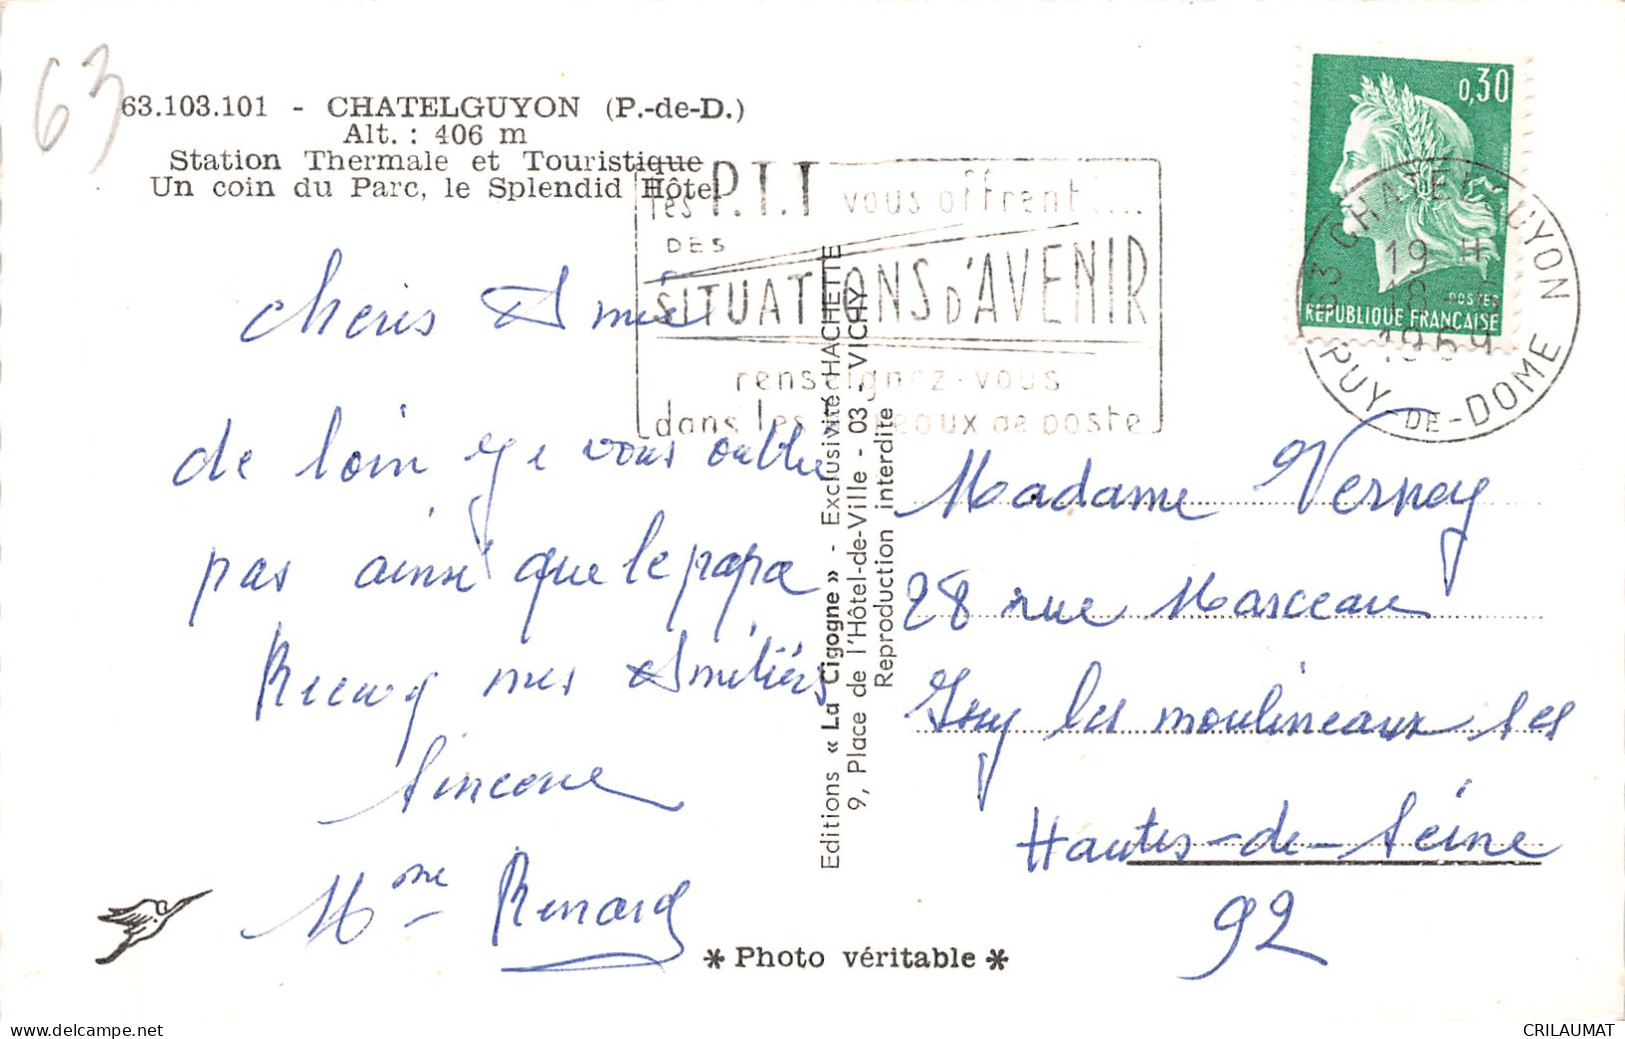 63
63.103.101 - CHATELGUYON (P.-de-D.)
Alt. : 406 m
Station Thermale et Touristique
Un coin du Parc, le Splendid Hôtel
les P.T.T vous offrent....
DES
SITUATIONS D'AVENIR
renseignez-vous
dans les bureaux de poste
0,30
POSTES
REPUBLIQUE FRANÇAISE
63 CHATELGUYON
19 H
18
1969
PUY-DE-DOME
cheris Amie
de loin je vous oublie
pas ainsi que le papa
mes Amitiés
sincere
Mme Renard
Editions « La Cigogne » - Exclusivité HACHETTE
9, Place de l'Hôtel-de-Ville - 03 - VICHY
Reproduction interdite
Madame Vernay
28 rue Marceau
Issy les moulineaux
Hautes-de-Seine
92
* Photo véritable *
delcampe.net
CRILAUMAT